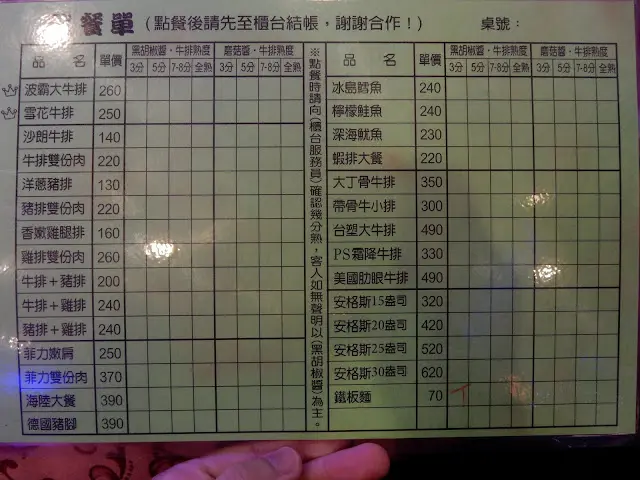 餐單 (點餐後請先至櫃台結帳，謝謝合作！) 桌號：
品名 單價 黑胡椒醬・牛排熟度 蘑菇醬・牛排熟度
3分 5分 7-8分 全熟 3分 5分 7-8分 全熟
波霸大牛排 260
雪花牛排 250
沙朗牛排 140
牛排雙份肉 220
洋蔥豬排 130
豬排雙份肉 220
香嫩雞腿排 160
雞排雙份肉 260
牛排＋豬排 200
牛排＋雞排 240
豬排＋雞排 240
菲力嫩肩 250
菲力雙份肉 370
海陸大餐 390
德國豬腳 390
※點餐時請向(櫃台服務員)確認幾分熟，客人如無聲明以(黑胡椒醬)為主。
品名 單價 黑胡椒醬・牛排熟度 蘑菇醬・牛排熟度
3分 5分 7-8分 全熟 3分 5分 7-8分 全熟
冰島鱈魚 240
檸檬鮭魚 240
深海魷魚 230
蝦排大餐 220
大丁骨牛排 350
帶骨牛小排 300
台塑大牛排 490
PS霜降牛排 330
美國肋眼牛排 490
安格斯15盎司 320
安格斯20盎司 420
安格斯25盎司 520
安格斯30盎司 620
鐵板麵 70